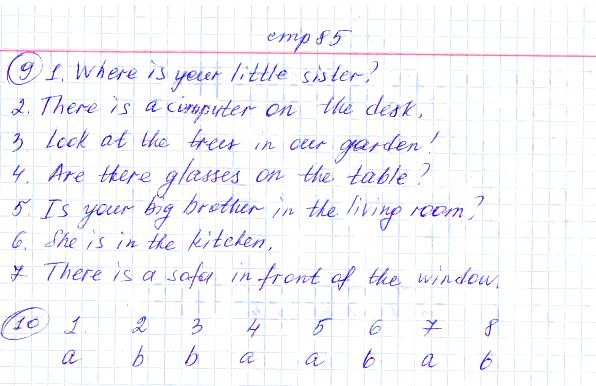 стр 85
9 1. Where is your little sister?
2. There is a computer on the desk.
3 Look at the trees in our garden!
4. Are there glasses on the table?
5. Is your big brother in the living room?
6. She is in the kitchen.
7 There is a sofa in front of the window.
10 1. 2 3 4 5 6 7 8
a b b a a b a b